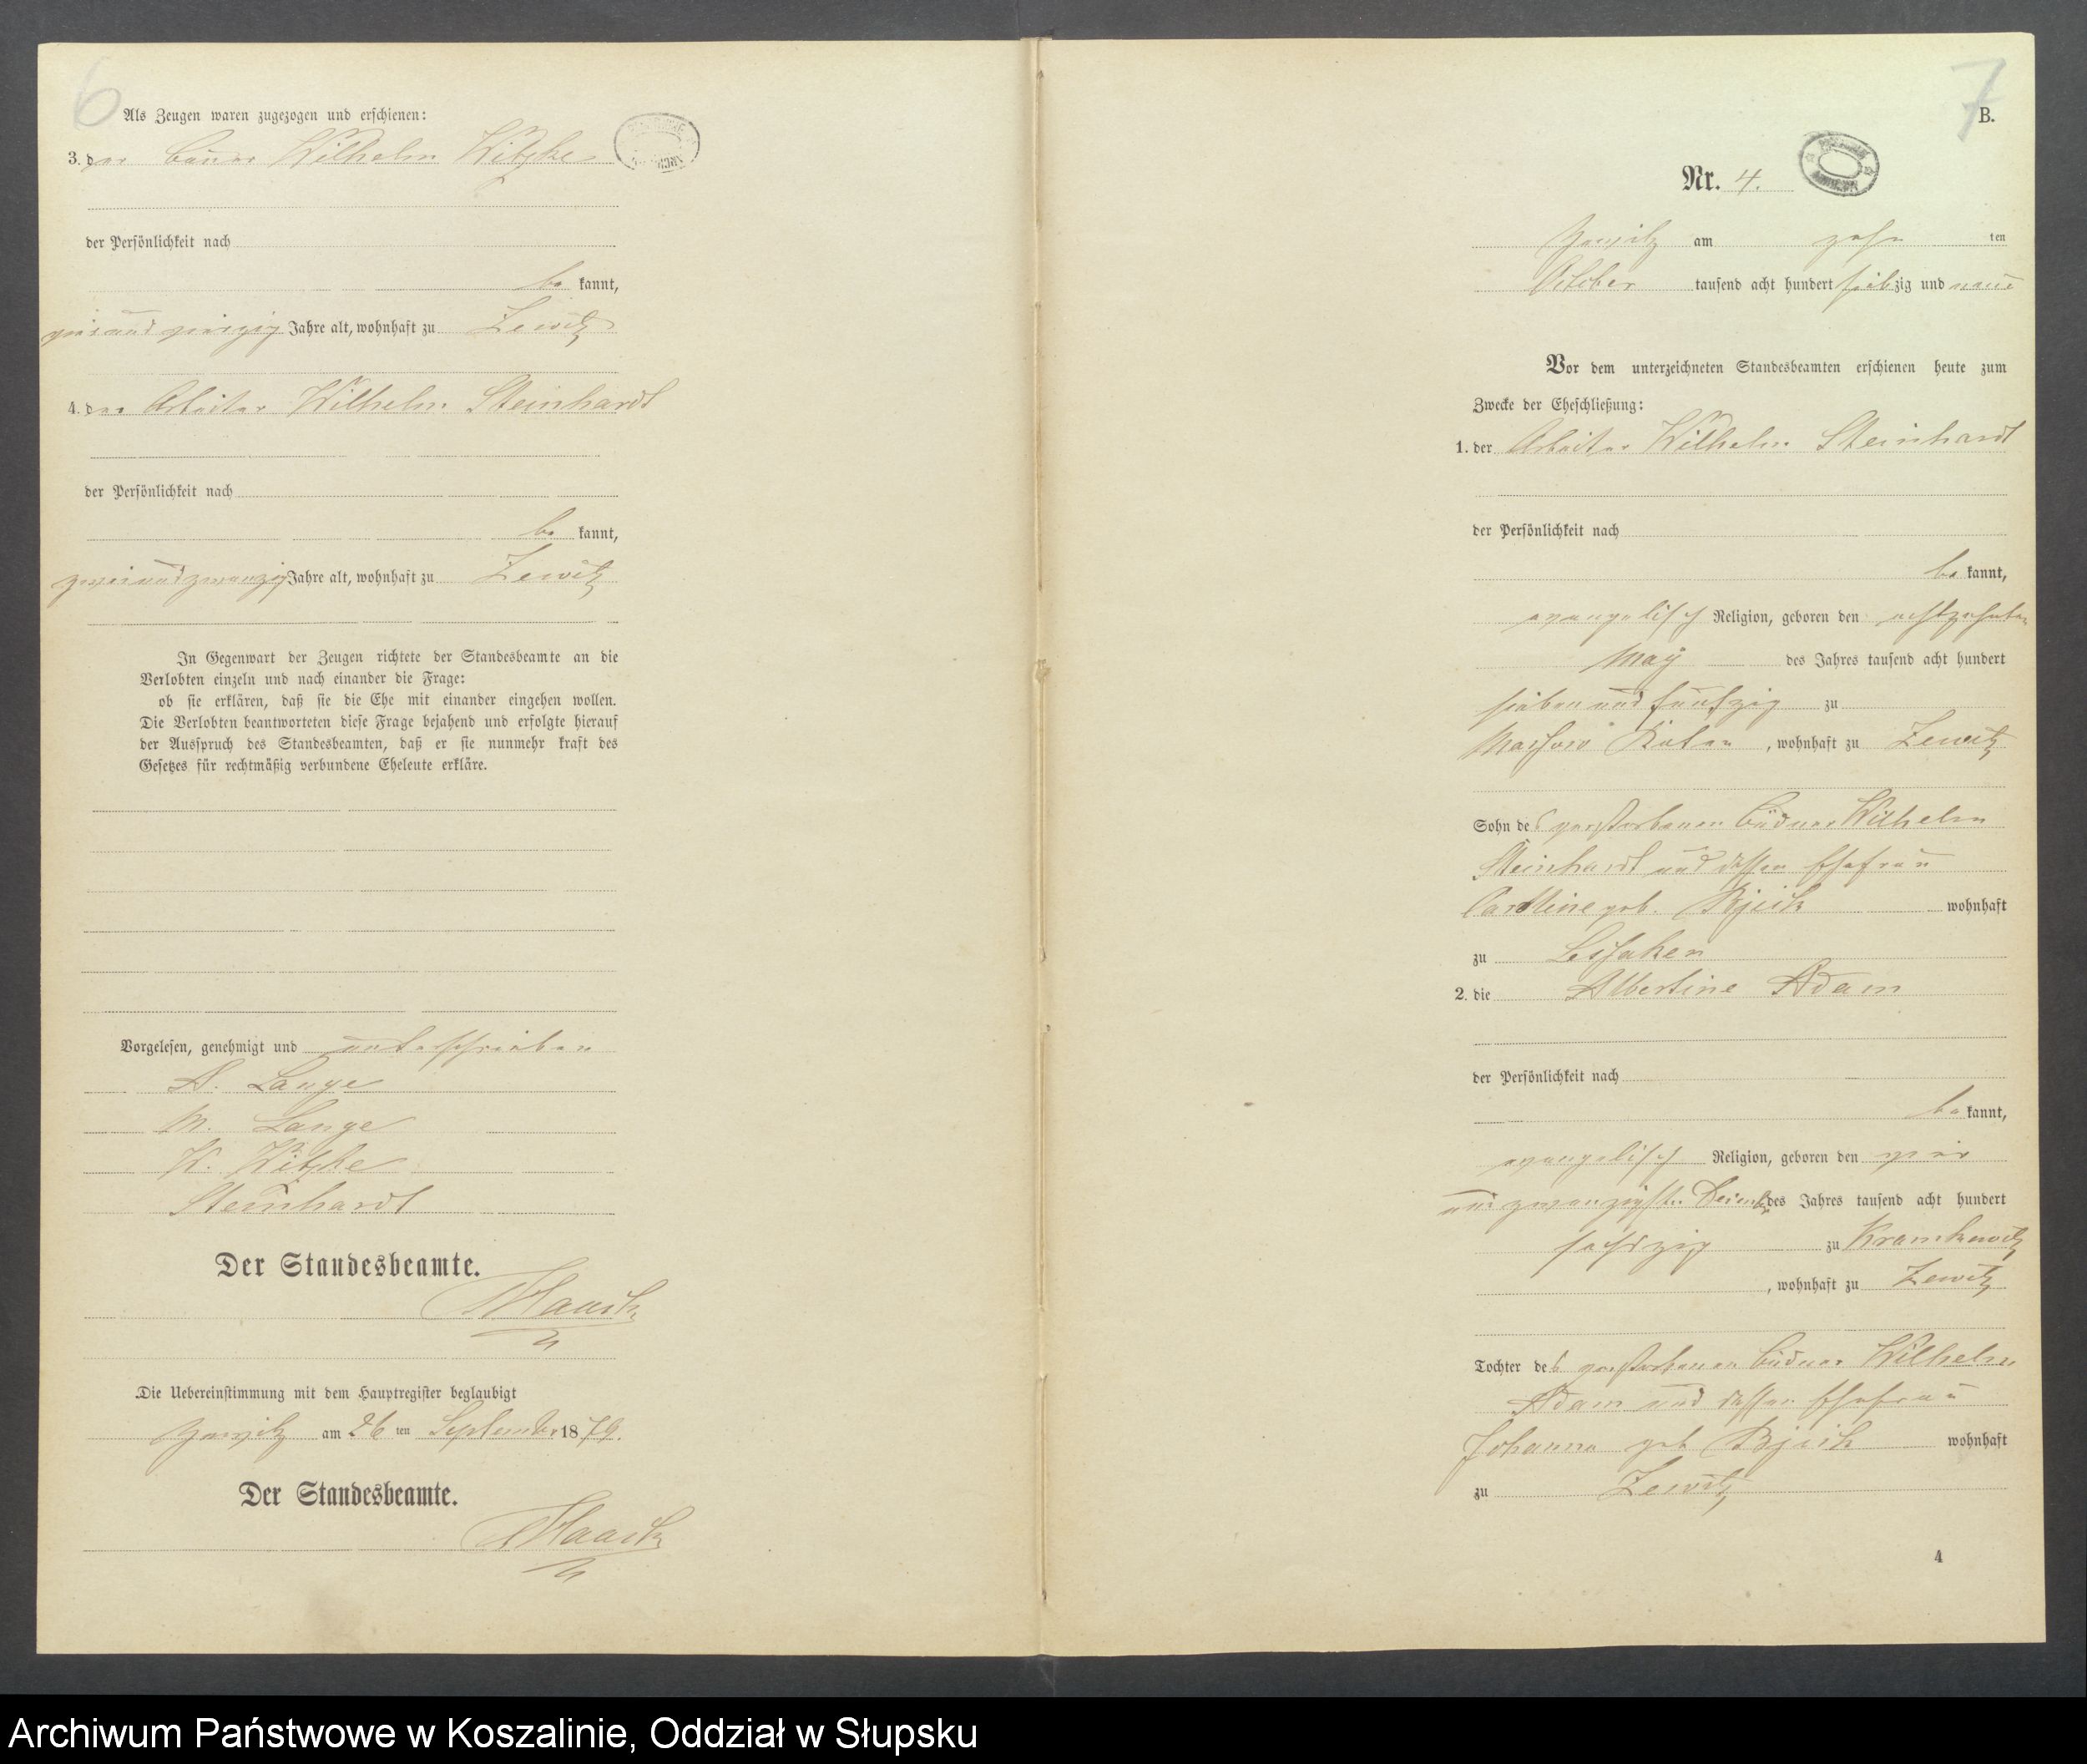 6
Als Zeugen waren zugezogen und erschienen:
3. der Bauer Wilhelm Witzke
der Persönlichkeit nach
be kannt,
vierundvierzig Jahre alt, wohnhaft zu Zewitz
4. der Arbeiter Wilhelm Steinhardt
der Persönlichkeit nach
be kannt,
zweiundzwanzig Jahre alt, wohnhaft zu Zewitz
In Gegenwart der Zeugen richtete der Standesbeamte an die
Verlobten einzeln und nach einander die Frage:
ob sie erklären, daß sie die Ehe mit einander eingehen wollen.
Die Verlobten beantworteten diese Frage bejahend und erfolgte hierauf
der Ausspruch des Standesbeamten, daß er sie nunmehr kraft des
Gesetzes für rechtmäßig verbundene Eheleute erkläre.
Vorgelesen, genehmigt und unterschrieben
A. Lange
M. Lange
W. Witzke
Steinhardt
Der Standesbeamte.
Die Uebereinstimmung mit dem Hauptregister beglaubigt
am 26 ten September 1879.
Der Standesbeamte.
7
B.
Nr. 4.
am zehn ten
October tausend acht hundert siebzig und neun
Vor dem unterzeichneten Standesbeamten erschienen heute zum
Zwecke der Eheschließung:
1. der Arbeiter Wilhelm Steinhardt
der Persönlichkeit nach
be kannt,
evangelisch Religion, geboren den achtzehnten
May des Jahres tausend acht hundert
sieben und fünfzig zu
wohnhaft zu Zewitz
Sohn des verstorbenen Büdner Wilhelm
Steinhardt und dessen Ehefrau
Caroline geb. wohnhaft
zu
2. die Albertine Adam
der Persönlichkeit nach
be kannt,
evangelisch Religion, geboren den vier
und zwanzigsten Decembr des Jahres tausend acht hundert
sechszig zu Krampkewitz
, wohnhaft zu Zewitz
Tochter des verstorbenen Büdner Wilhelm
Adam und dessen Ehefrau
Johanna geb wohnhaft
zu Zewitz
4
Archiwum Państwowe w Koszalinie, Oddział w Słupsku